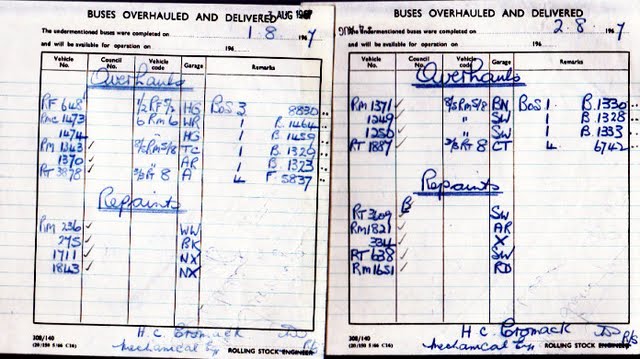 BUSES OVERHAULED AND DELIVERED
AUG 1967
The undermentioned buses were completed on 1 . 8 . 1967
and will be available for operation on 196
Vehicle No. Council No. Vehicle code Garage Remarks
Overhauls
RF 648 ½RF½ HG BoS 3 8830
RMC 1473 6 RM 6 WR 1 R. 1464
1474 " HG 1 B 1455
RM 1343 ✓ 8/5RM5/8 TC 1 B 1320
1370 ✓ " AR 1 B 1323
RT 3878 ✓ RT 8 A 4 F. 5837
Repaints
RM 236 ✓ WW
275 ✓ BK
1711 ✓ NX
1843 ✓ NX
H. C. Cromack
Mechanical
308/140
ROLLING STOCK ENGINEER
BUSES OVERHAULED AND DELIVERED
The undermentioned buses were completed on 2 . 8 . 1967
and will be available for operation on 196
Vehicle No. Council No. Vehicle code Garage Remarks
Overhauls
RM 1371 ✓ 8/5RM5/8 BN BoS 1 B. 1330
1249 ✓ " SW 1 B. 1328
1250 ✓ " SW 1 B. 1333
RT 1887 ✓ RT 8 CT 4 6742
Repaints
RT 3609 SW
RM 1821 ✓ AR
334 ✓ X
RT 638 ✓ SW
RM 1651 ✓ RD
H. C. Cromack
Mechanical
308/140
ROLLING STOCK ENGINEER